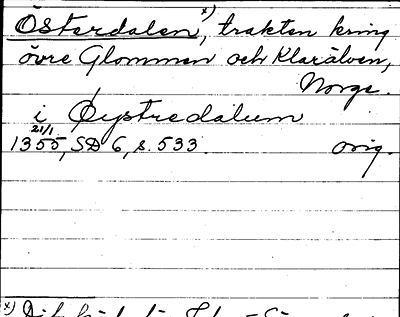 Österdalen, x) trakten kring
övre Glommen och Klarälven,
Norge.
i Øystredalum
21/1
1355, SD 6, s. 533. orig.
x)